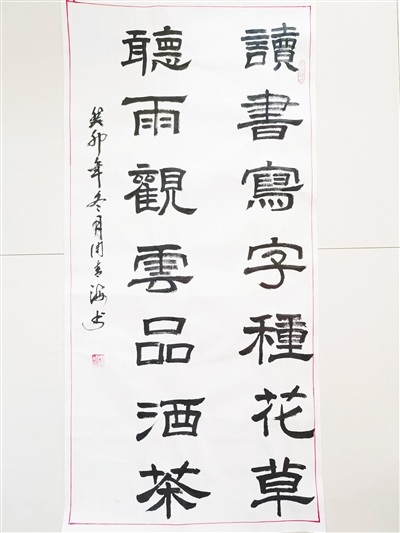 讀書寫字種花草
聽雨觀雲品酒茶
癸卯年冬月周青海书